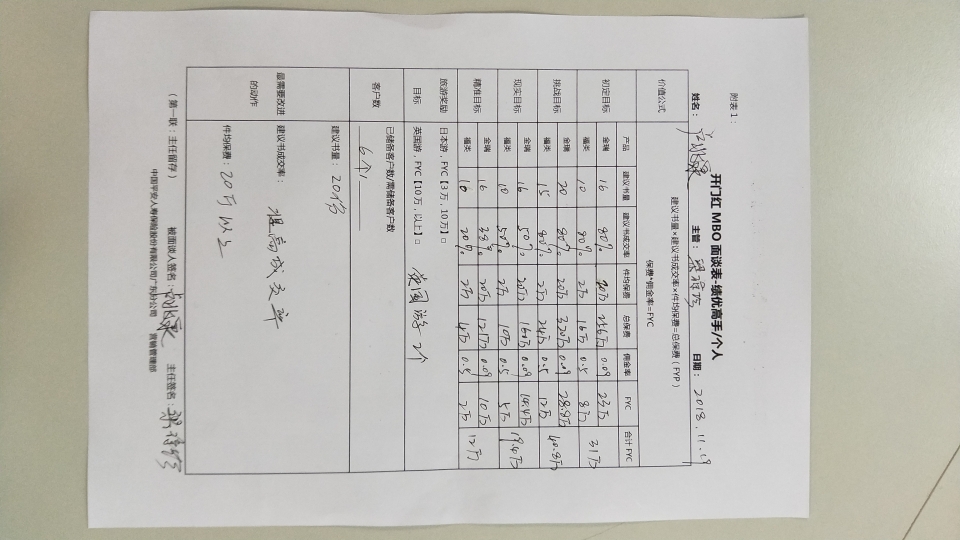 附表1：
开门红 MBO 面谈表-绩优高手/个人
姓名： 主管： 日期： 2018.11.29
价值公式 建议书量×建议书成交率×件均保费=总保费（FYP）
保费*佣金率=FYC
产品 建议书量 建议书成交率 件均保费 总保费 佣金率 FYC 合计 FYC
初定目标 金瑞 16 80% 20万 256万 0.09 23万 31万
福类 10 80% 2万 16万 0.5 8万
挑战目标 金瑞 20 80% 20万 320万 0.09 28.8万 40.8万
福类 15 80% 2万 24万 0.5 12万
现实目标 金瑞 16 50% 20万 160万 0.09 14.4万 19.4万
福类 10 50% 2万 10万 0.5 5万
精准目标 金瑞 16 38% 20万 121万 0.09 10万 12万
福类 10 20% 2万 4万 0.5 2万
旅游奖励目标 日本游，FYC【3万，10万】□
英国游，FYC【10万，以上】□ 英国游2个
客户数 已储备客户数/需储备客户数
6个/
最需要改进的动作 建议书量： 20份
建议书成交率： 提高成交率
件均保费： 20万以上
（第一联：主任留存） 被面谈人签名： 主任签名：
中国平安人寿保险股份有限公司广东分公司 营销管理部